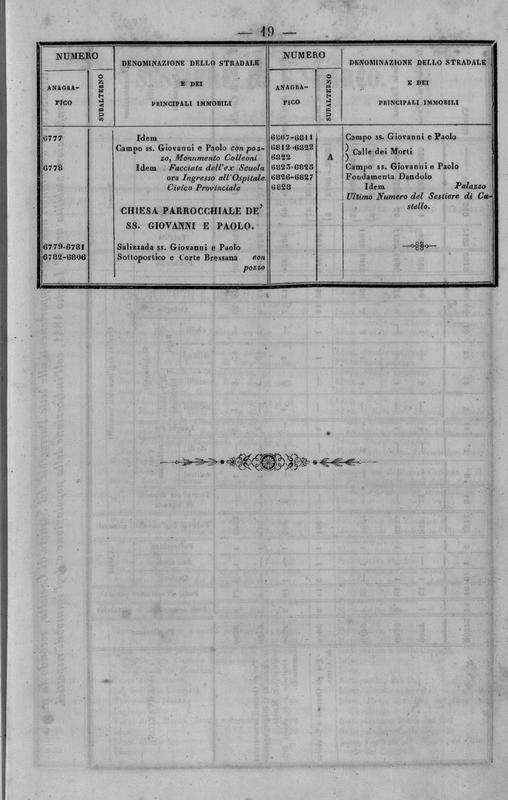 — 19 —
NUMERO
ANAGRA-
FICO
SUBALTERNO
DENOMINAZIONE DELLO STRADALE
E DEI
PRINCIPALI IMMOBILI
6777 Idem
Campo ss. Giovanni e Paolo con poz-
zo, Monumento Colleoni
6778 Idem Facciata dell'ex Scuola
ora Ingresso all'Ospitale
Civico Provinciale
CHIESA PARROCCHIALE DE'
SS. GIOVANNI E PAOLO.
6779-6781 Salizzada ss. Giovanni e Paolo
6782-6806 Sottoportico e Corte Bressana con
pozzo
NUMERO
ANAGRA-
FICO
SUBALTERNO
DENOMINAZIONE DELLO STRADALE
E DEI
PRINCIPALI IMMOBILI
6807-6811 Campo ss. Giovanni e Paolo
6812-6822 ) Calle dei Morti
6822 A )
6823-6825 Campo ss. Giovanni e Paolo
6826-6827 Fondamenta Dandolo
6828 Idem Palazzo
Ultimo Numero del Sestiere di Ca-
stello.